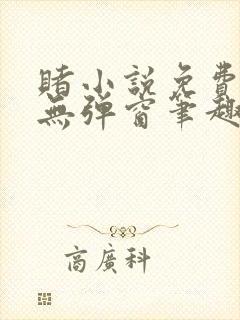 賭小說免費
無彈窗筆趣
商廣科